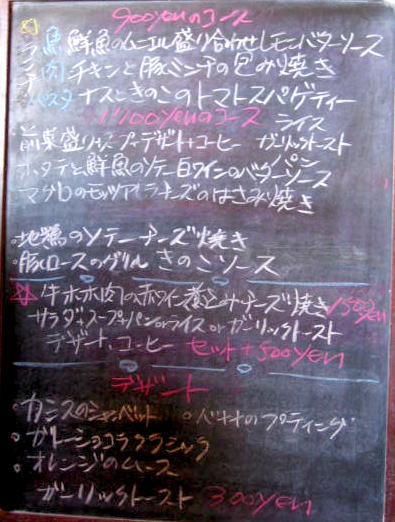 900yenのコース
ランチ 魚 鮮魚のムニエル盛り合わせレモンバターソース
肉 チキンと豚ミンチの包み焼き
パスタ ナスときのこのトマトスパゲティー
1700yenのコース ライス
前菜盛り+スープ+デザート+コーヒー ガーリックトースト
パン
ホタテと鮮魚のソテー白ワインのバターソース
マグロのモッツアレラチーズのはさみ焼き
・地鶏のソテーチーズ焼き
・豚ロースのグリル きのこソース
☆牛ホホ肉の赤ワイン煮込みチーズ焼き1500yen
サラダ+スープ+パンorライスorガーリックトースト
デザート、コーヒー セット+500yen
デザート
・カシスのシャーベット ○バナナのプディング
・ガトーショコラクラシック
・オレンジのムース
ガーリックトースト 300yen